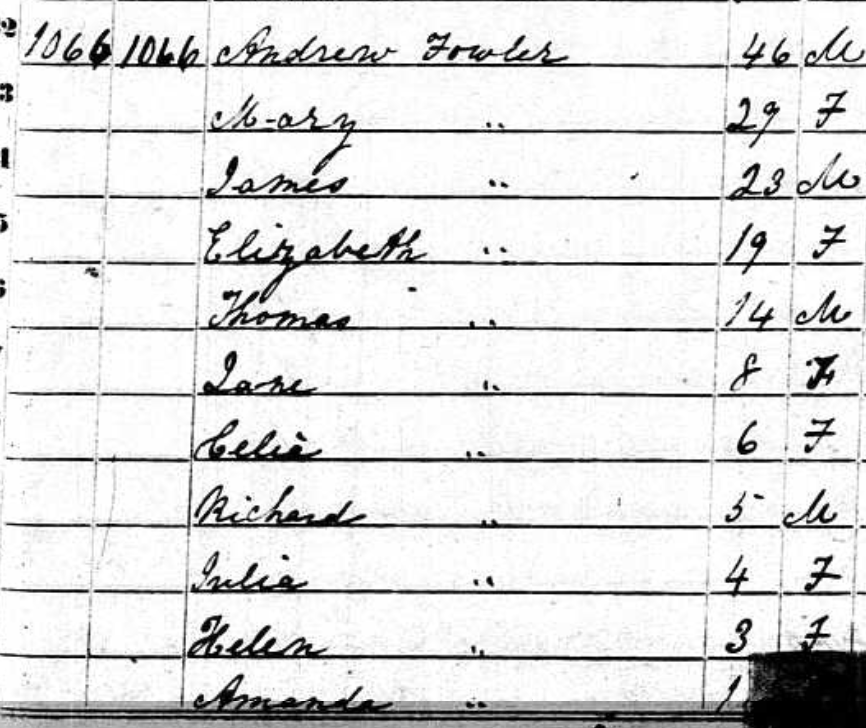 2 1066 1066 Andrew Fowler 46 M
3 Mary " 29 F
James " 23 M
5 Elizabeth " 19 F
Thomas " 14 M
Jane " 8 F
Celia " 6 F
Richard " 5 M
Julia " 4 F
Helen " 3 F
Amanda " 1